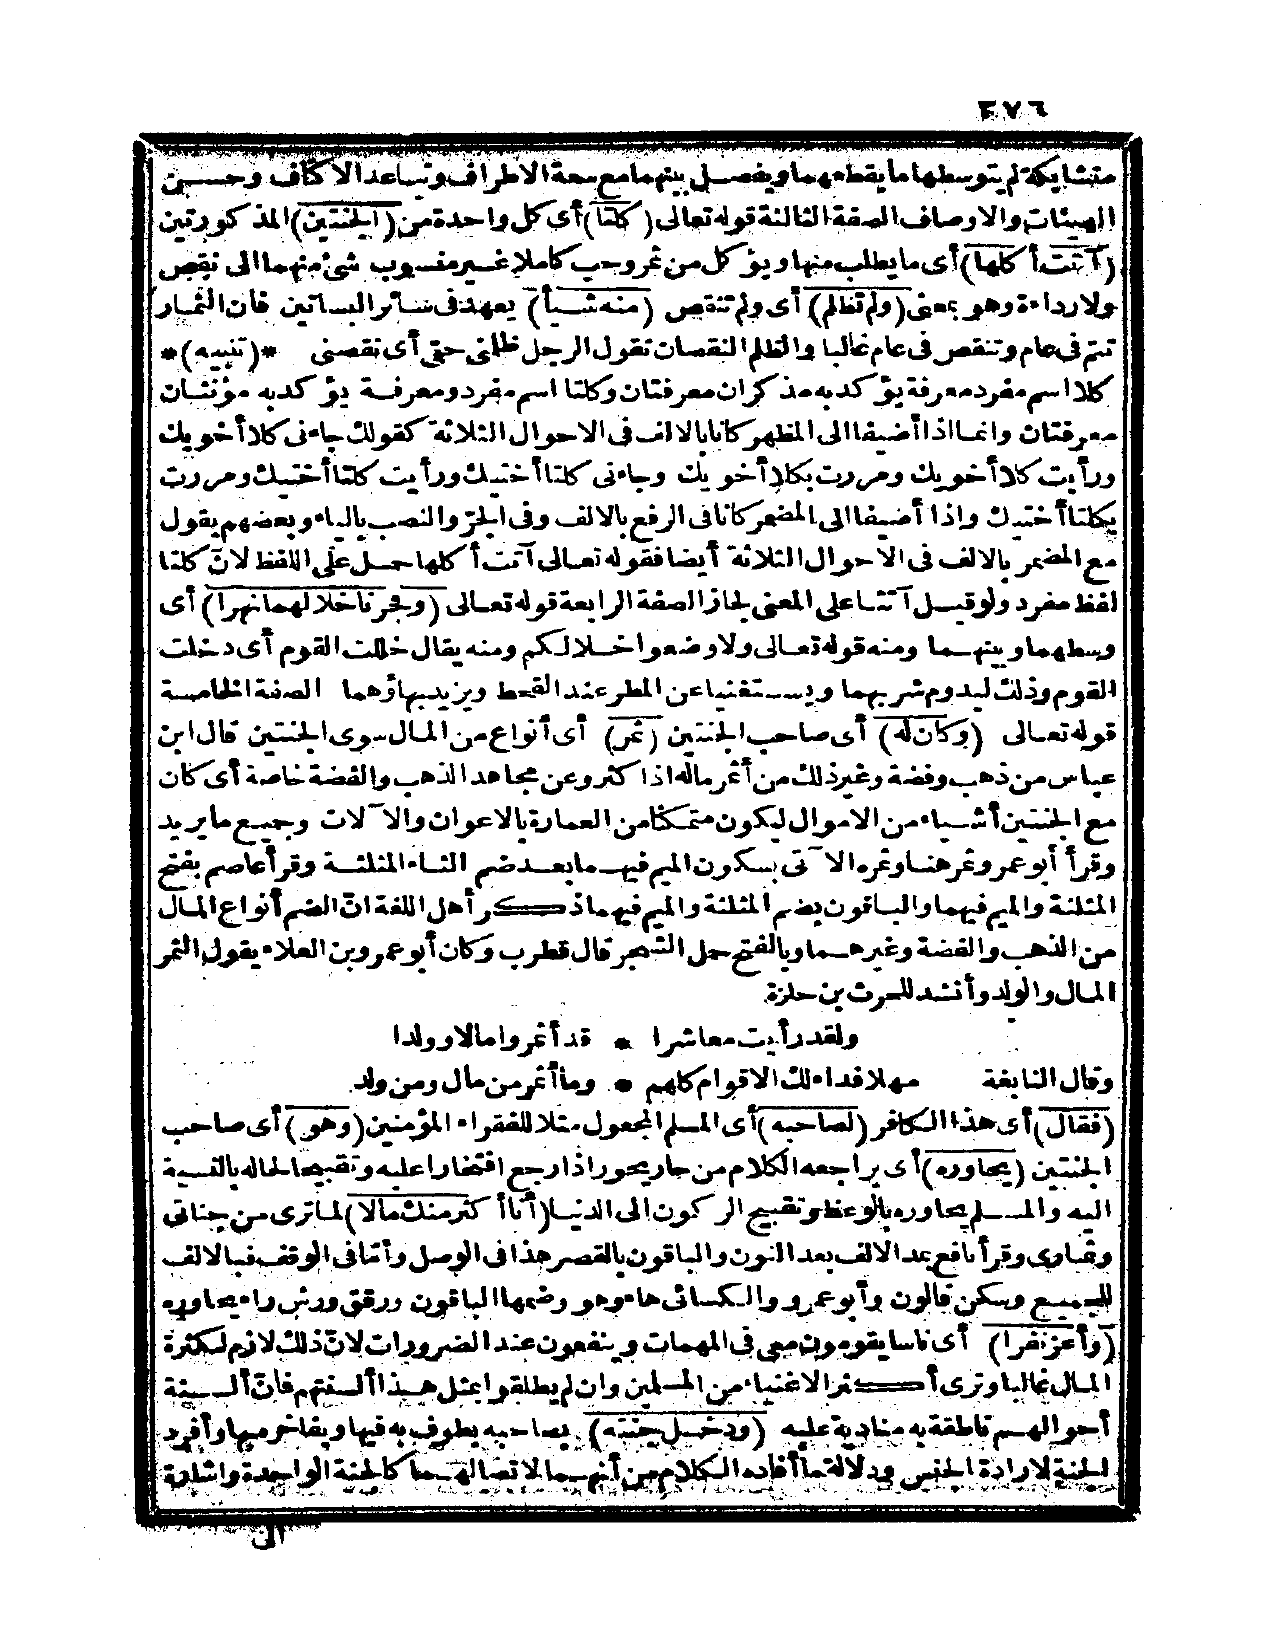 ٣٧٦
متشابكة لم يتوسطها ما يقطعهما ويفصل بينهما مع سعة الاطراف وتباعد الاكناف وحسن
الهيئات والاوصاف الصفة الثالثة قوله تعالى (كلتا) أى كل واحدة من (الجنتين) المذكورتين
(آتت أكلها) أى ما يطلب منها ويؤكل من ثمر وحب كاملا غير منسوب شئ منهما الى نقص
ولا رداءة وهو بمعنى (ولم تظلم) أى ولم تنقص (منه شيأ) يعهد فى سائر البساتين فان الثمار
تتم فى عام وتنقص فى عام غالبا والظلم النقصان تقول الرجل ظلمنى حقى أى نقصنى *(تنبيه)*
كلا اسم مفرد معرفة يؤكد به مذكران معرفتان وكلتا اسم مفرد ومعرفة يؤكد به مؤنثان
معرفتان وانما اذا أضيفا الى المظهر كانا بالالف فى الاحوال الثلاثة كقولك جاءنى كلا أخويك
ورأيت كلا أخويك ومررت بكلا أخويك وجاءنى كلتا أختيك ورأيت كلتا أختيك ومررت
بكلتا أختيك واذا أضيفا الى المضمر كانا فى الرفع بالالف وفى الجرّ والنصب بالياء وبعضهم يقول
مع المضمر بالالف فى الاحوال الثلاثة أيضا فقوله تعالى آتت أكلها حمل على اللفظ لانّ كلتا
لفظ مفرد ولو قيل آتتا على المعنى لجاز الصفة الرابعة قوله تعالى (وفجرنا خلالهما نهرا) أى
وسطهما وبينهما ومنه قوله تعالى ولاوضعوا خلالكم ومنه يقال خللت القوم أى دخلت
القوم وذلك ليدوم شربهما ويستغنيا عن المطر عند القحط ويزيد بهاؤهما الصفة الخامسة
قوله تعالى (وكان له) أى صاحب الجنتين (ثمر) أى أنواع من المال سوى الجنتين قال ابن
عباس من ذهب وفضة وغير ذلك من أثمر ماله اذا كثر وعن مجاهد الذهب والفضة خاصة أى كان
مع الجنتين أشياء من الاموال ليكون متمكنا من العمارة بالاعوان والآلات وجميع ما يريد
وقرأ أبو عمرو ثمر هنا وثمره الآتى بسكون الميم فيهما بعد ضم الثاء المثلثة وقرأ عاصم بفتح
المثلثة والميم فيهما والباقون بضم المثلثة والميم فيهما ذكر أهل اللغة انّ الضم أنواع المال
من الذهب والفضة وغيرهما وبالفتح حمل الشجر قال قطرب وكان أبو عمرو بن العلاء يقول الثمر
المال والولد وأنشد للحرث بن حلزة
ولقد رأيت معاشرا * قد أثمروا مالا وولدا
وقال النابغة مهلا فداء لك الاقوام كلهم * وما أثمر من مال ومن ولد
(فقال) أى هذا الكافر (لصاحبه) أى المسلم المجعول مثلا للفقراء المؤمنين (وهو) أى صاحب
الجنتين (يحاوره) أى يراجعه الكلام من حار يحور اذا رجع افتخارا عليه وتقبيحا لحاله بالنسبة
اليه والمسلم يحاوره بالوعظ وتقبيح الركون الى الدنيا (أنا أكثر منك مالا) لما ترى من جناتى
وثمارى وقرأ نافع بمد الالف بعد النون والباقون بالقصر هذا فى الوصل وأمّا فى الوقف فبالالف
للجميع وسكن قالون وأبو عمرو والكسائى هاء وهو وضمها الباقون ورقق ورش راء يحاوره
(وأعز نفرا) أى ناسا يقومون معى فى المهمات وينفعون عند الضرورات لانّ ذلك لازم لكثرة
المال غالبا وترى أكثر الاغنياء من المسلمين وان لم يطلقوا بمثل هذا ألسنتهم فانّ ألسنة
أحوالهم ناطقة به منادية عليه (ودخل جنته) بصاحبه يطوف به فيها ويفاخره بها وأفرد
الجنة لارادة الجنس ودلالة ما أفاده الكلام من أنهما لاتصالهما كالجنة الواحدة واشارة
الى